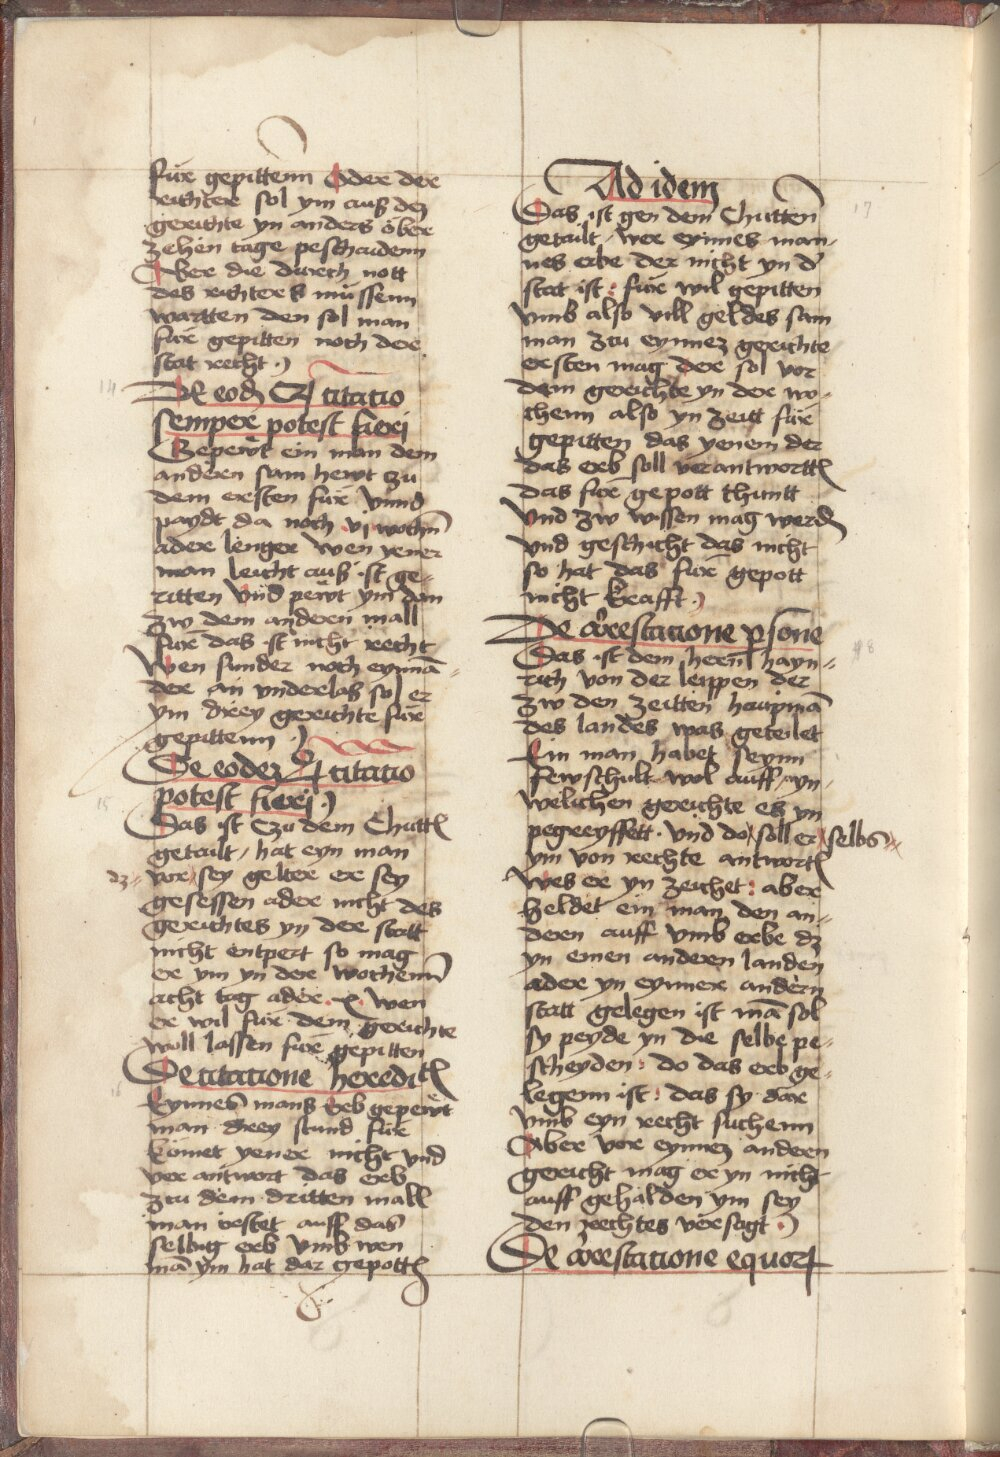 für gepittenn Oder der
richter sol ym auß dez
gerichte yn anders ober
zehen tage peschaidenn
Aber die durch nott
des richters müssenn
wartten den sol man
für gepitten noch der
stat recht
14
De eod
citatio
semper potest fieri
Gepewt ein man dem
andern sam hewt czu
dem ersten für vnnd
paydt da noch vj wochn̄
ader lenger wen yener
man leicht auß ist ge-
ritten vnd pewt ym den
zw dem andern mall
für das ist nicht recht
Wen sunder noch eynnā-
der an vnderlas sol er
ym drey gerichte für
gepittenn
De eodez
citatio
potest fieri
15
Das ist Czu dem Chutt
getailt hat eyn man
dz
vor sey gelter er sey
gesessen ader nicht des
gerichtes yn der statt
nicht entpert so mag
er ym yn der wochenn
acht tag ader x wen
er wil für dem gerichte
woll lassen für gepitten
De citatione heredit
16
Eynnes mans Erb gepewt
man drey stund für
kömet yener nicht vnd
ver antwort das erb
zcu dem dritten mall
man
auff das
selbig erb vmb wen
mā ym hat dar gepott
Ad idem
17
Das ist gen dem Chutten
getailt wer eynnes man-
nes erbe der nicht yn d'
stat ist : für wil gepitten
vmb also vill geldes sam
man zcu eynnez gerichte
ersten mag der sol vor
dem gerichte yn der wo-
chenn also yn zeitt für
gepitten das yenem der
das erb soll verantwortt
das für gepott thuntt
Vnd zw wissen mag werd
vnd geschicht das nicht
so hat das für gepott
nicht krafft
De arrestacione psone
18
Das ist dem herrn hayn-
rich von der leippen der
zw den zeitten haupmā
des landes was geteilet
Ein man habet seynn
sewschult wol auff yn
welichen gerichte er yn
pegreyffett. Vnd do soll er selbs
ym von rechte antwort
wes er yn zeichet : aber
heldet ein man den an-
dern auff vmb erbe dz
yn einen andern landen
ader yn eynner andern
statt gelegen ist mā sol
sy peyde yn die selbe pe-
scheyden : do das erb ge-
legenn ist : das sy dar
vmb eyn recht suchenn
Aber vor eynnez andern
gericht mag er yn nicht
auff gehalden ym sey
den rechtes versagt
De arrestacione equor